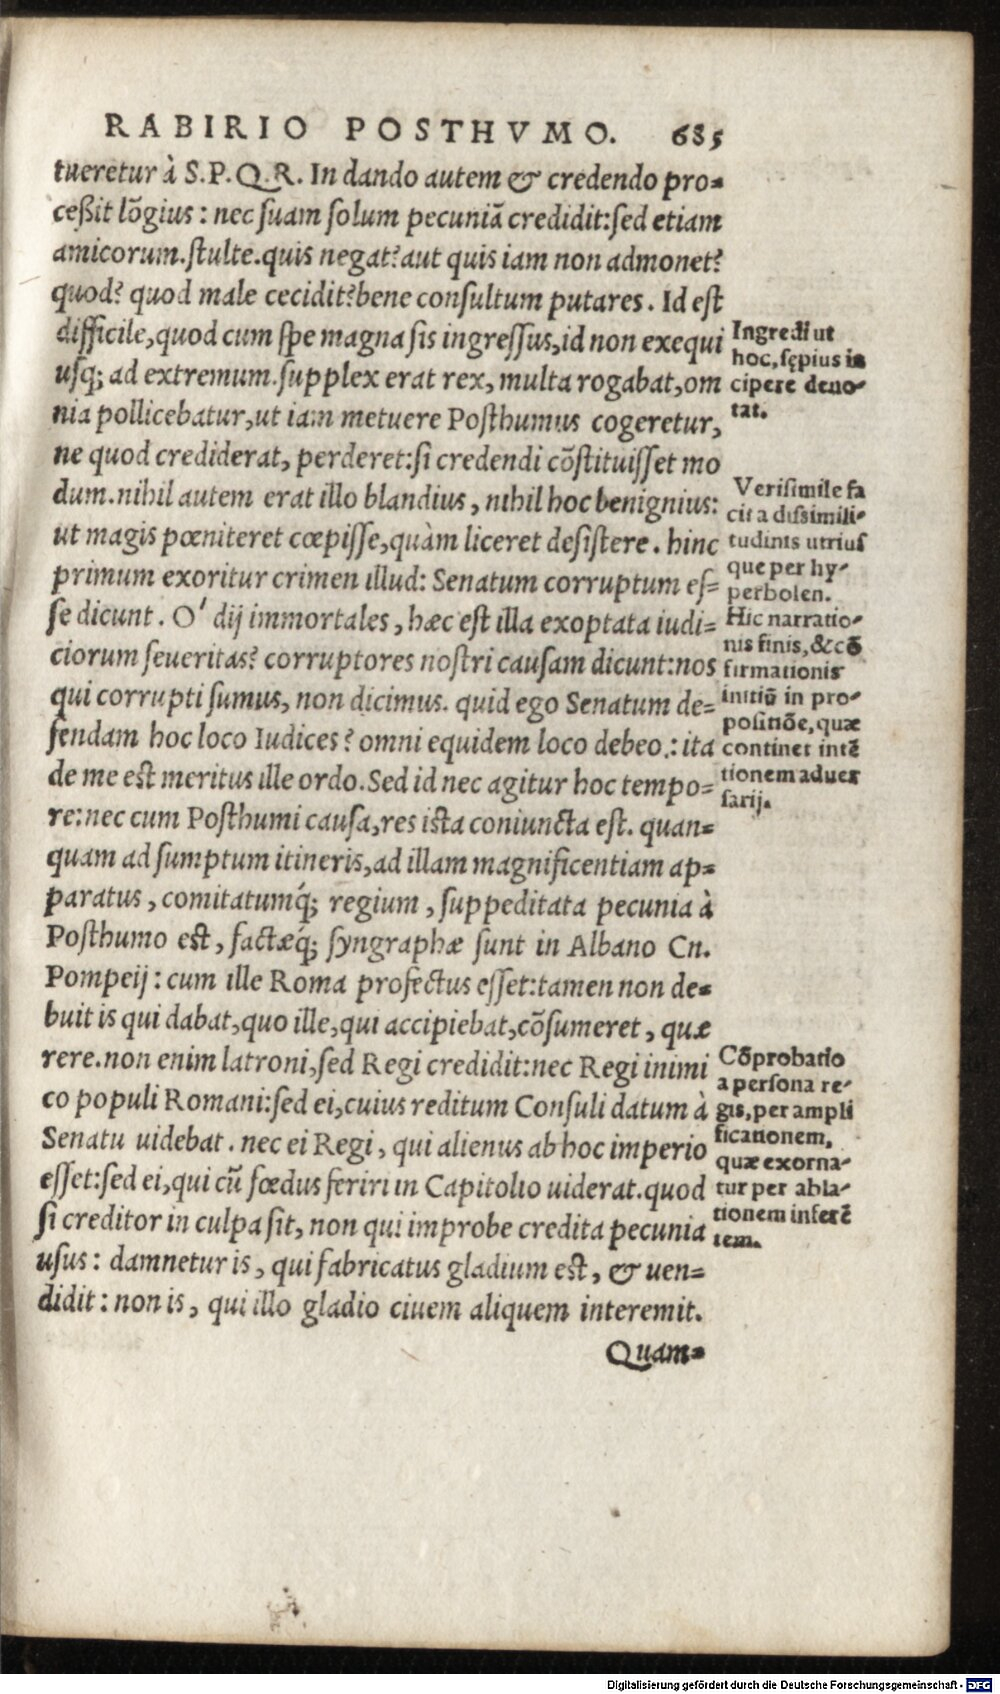 RABIRIO POSTHVMO. 685
tueretur à S.P.Q.R. In dando autem & credendo pro-
ceßit lõgius: nec suam solum pecuniã credidit: sed etiam
amicorum. stulte. quis negat? aut quis iam non admonet?
quod? quod male cecidit? bene consultum putares. Id est
difficile, quod cum spe magna sis ingressus, id non exequi
usq; ad extremum. supplex erat rex, multa rogabat, om
nia pollicebatur, ut iam metuere Posthumus cogeretur,
ne quod crediderat, perderet: si credendi cõstituisset mo
dum. nihil autem erat illo blandius, nihil hoc benignius:
ut magis pœniteret cœpisse, quàm liceret desistere. hinc
primum exoritur crimen illud: Senatum corruptum es-
se dicunt. O' dij immortales, hæc est illa exoptata iudi-
ciorum seueritas? corruptores nostri causam dicunt: nos
qui corrupti sumus, non dicimus. quid ego Senatum de-
fendam hoc loco Iudices? omni equidem loco debeo: ita
de me est meritus ille ordo. Sed id nec agitur hoc tempo-
re: nec cum Posthumi causa, res ista coniuncta est. quan-
quam ad sumptum itineris, ad illam magnificentiam ap-
paratus, comitatumq́; regium, suppeditata pecunia à
Posthumo est, factæq́; syngraphæ sunt in Albano Cn.
Pompeij: cum ille Roma profectus esset: tamen non de-
buit is qui dabat, quo ille, qui accipiebat, cõsumeret, quæ
rere. non enim latroni, sed Regi credidit: nec Regi inimi
co populi Romani: sed ei, cuius reditum Consuli datum à
Senatu uidebat. nec ei Regi, qui alienus ab hoc imperio
esset: sed ei, qui cũ fœdus feriri in Capitolio uiderat. quod
si creditor in culpa sit, non qui improbe credita pecunia
usus: damnetur is, qui fabricatus gladium est, & uen-
didit: non is, qui illo gladio ciuem aliquem interemit.
Quam-
Ingredi ut
hoc, sępius in
cipere deno-
tat.
Verisimile fa
cit a dissimili-
tudinis utrius
que per hy-
perbolen.
Hic narratio-
nis finis, & cõ
firmationis
initiũ in pro-
positiõe, quæ
continet intẽ
tionem aduer
sarij.
Cõprobatio
a persona re-
gis, per ampli
ficationem,
quæ exorna-
tur per abla-
tionem inferẽ
tem.
Digitalisierung gefördert durch die Deutsche Forschungsgemeinschaft - DFG